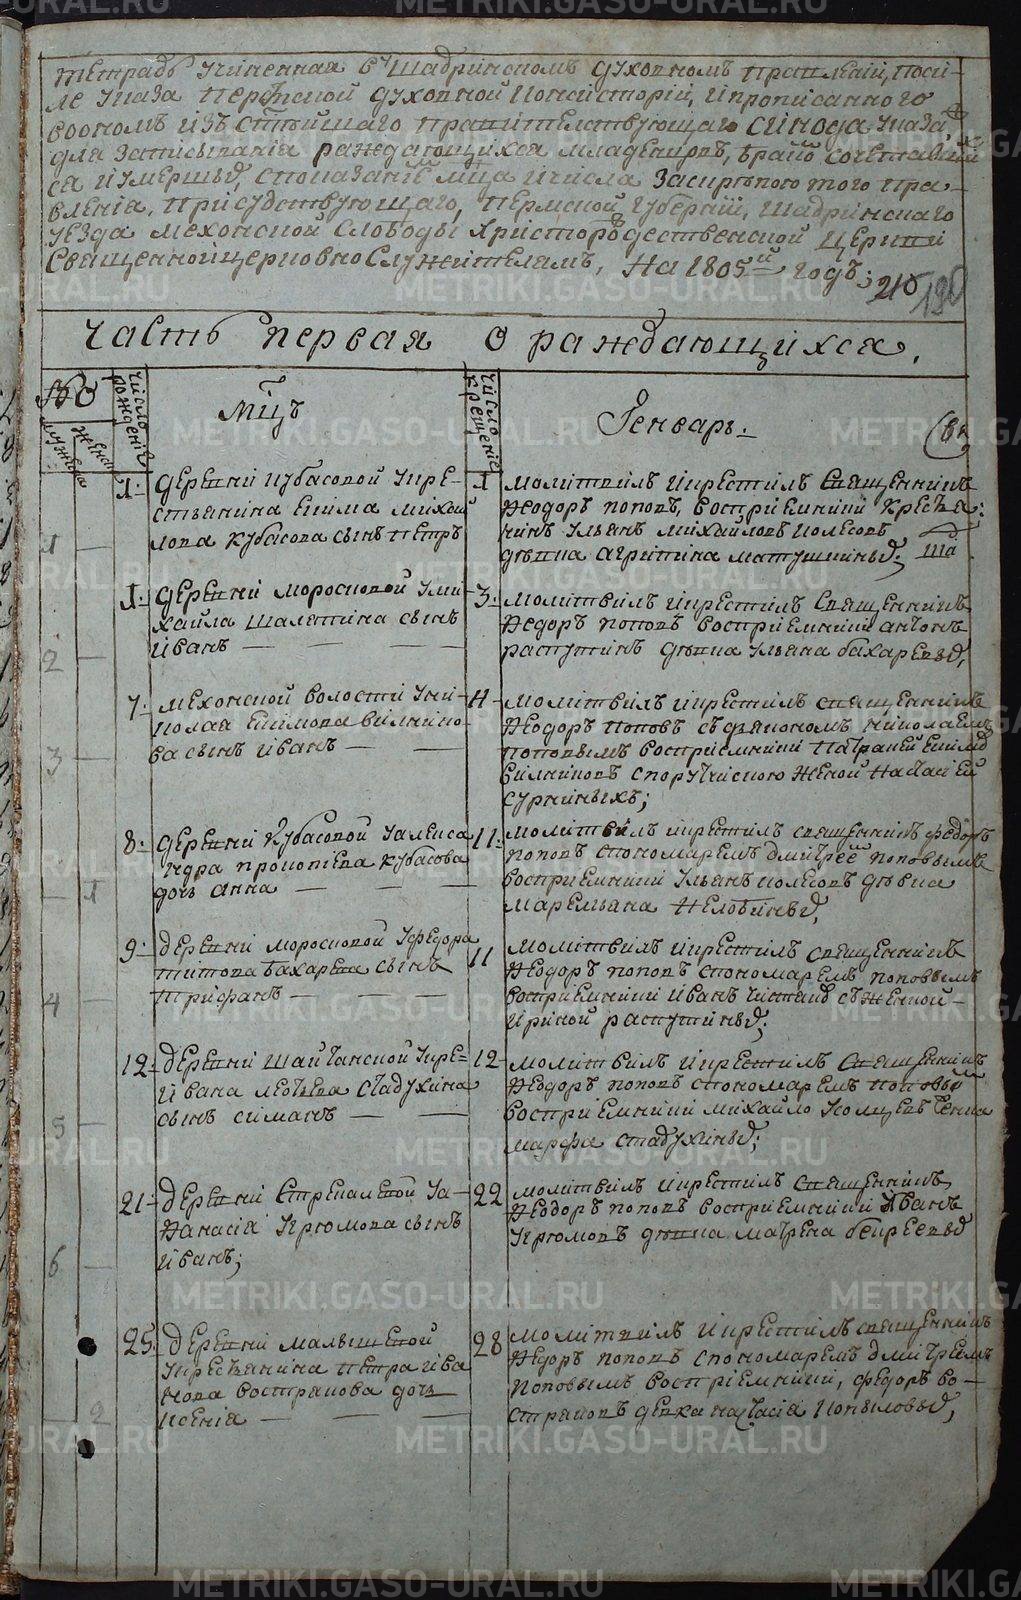 тетрадь учиненная въ Шадринскомъ духовномъ правленiи, поси-
ле указа пермской духовной консисторiи, и прописанного
воономъ изъ Стѣйшаго правителствующаго Синода указа,
для записыванiя раждающихся младенцовъ, бракомъ сочетавши
ся и умершихъ, споказанiемъ мца и числа засирѣпою того пра-
вленiя, присудствующаго, пермской губернiи, Шадринскаго
уезда мехонской слободы христорождественской церкви
Священноицерковнослужителямъ, на 1805й годъ;
210
190
Часть первая о раждающихся.
No
мужеска
женска
число рожденiе
мцъ
число крещенiе
Генварь.
1
1.
деревни кубасовой укре-
стьянина екима михай
лова кубасова сынъ петръ
1
молитвилъ икрестилъ священникъ
Ѳеодоръ поповъ, воспрiемники кресьтя:
нинъ ульянъ михайловъ колесовъ
дѣвка агрипина матушкиных;
2
1.
деревни моросковой уми-
хайла шалетина сынъ
иванъ
3.
молитвилъ икрестилъ священникъ
Ѳедоръ поповъ воспрiемники антонъ
распутинъ дѣвка ульяна бахаревых,
3
7.
мехонской волости уни-
колая екимова вилкино-
ва сынъ иванъ
11
молитвилъ икрестилъ священникъ
Ѳеодоръ поповъ съдьякономъ николаемъ
поповымъ воспрiемники патракей екимо
вилкиновъ споручисною женой настасiей
суркиныхъ;
1
8.
деревни кубасовой уалекса
ндра прокопева кубасова
дочь анна
11.
молитвилъ икрестилъ священникъ федоръ
поповъ спономаремъ дмитрее поповыме
воспрiемники ульянъ колесовъ дѣвка
маремьяна
4
9.
деревни моросковой уфедора
титова бахарева сынъ
трифанъ
11
молитвилъ икрестилъ священникъ
Ѳеодоръ поповъ спономаремъ поповымъ
воспрiемники иванъ съженой
ириной распутиных;
5
12.
деревни шайтанской укре-
ивана стадухина
сынъ симанъ
12
молитвилъ икрестилъ священникъ
Ѳеодоръ поповъ спономаремъ поповым
воспрiемники михайло
марфа стадухиных;
6
21.
деревни стрекалевой уа-
Ѳанасiя угрюмова сынъ
иванъ;
22
молитвилъ икрестилъ священникъ
Ѳеодоръ поповъ воспрiемники Иванъ
угрюмовъ дѣвка матрена бекреевых
2
25.
деревни малышевой
укрестьянина петра ива
нова вострякова дочь
ксенiя
28
молитвилъ икрестилъ священникъ
Ѳедоръ поповъ спономаремъ дмитремъ
поповымъ воспрiемники, федоръ во-
стряковъ девка настасiя копыловых,
METRIKI.GASO-URAL.RU